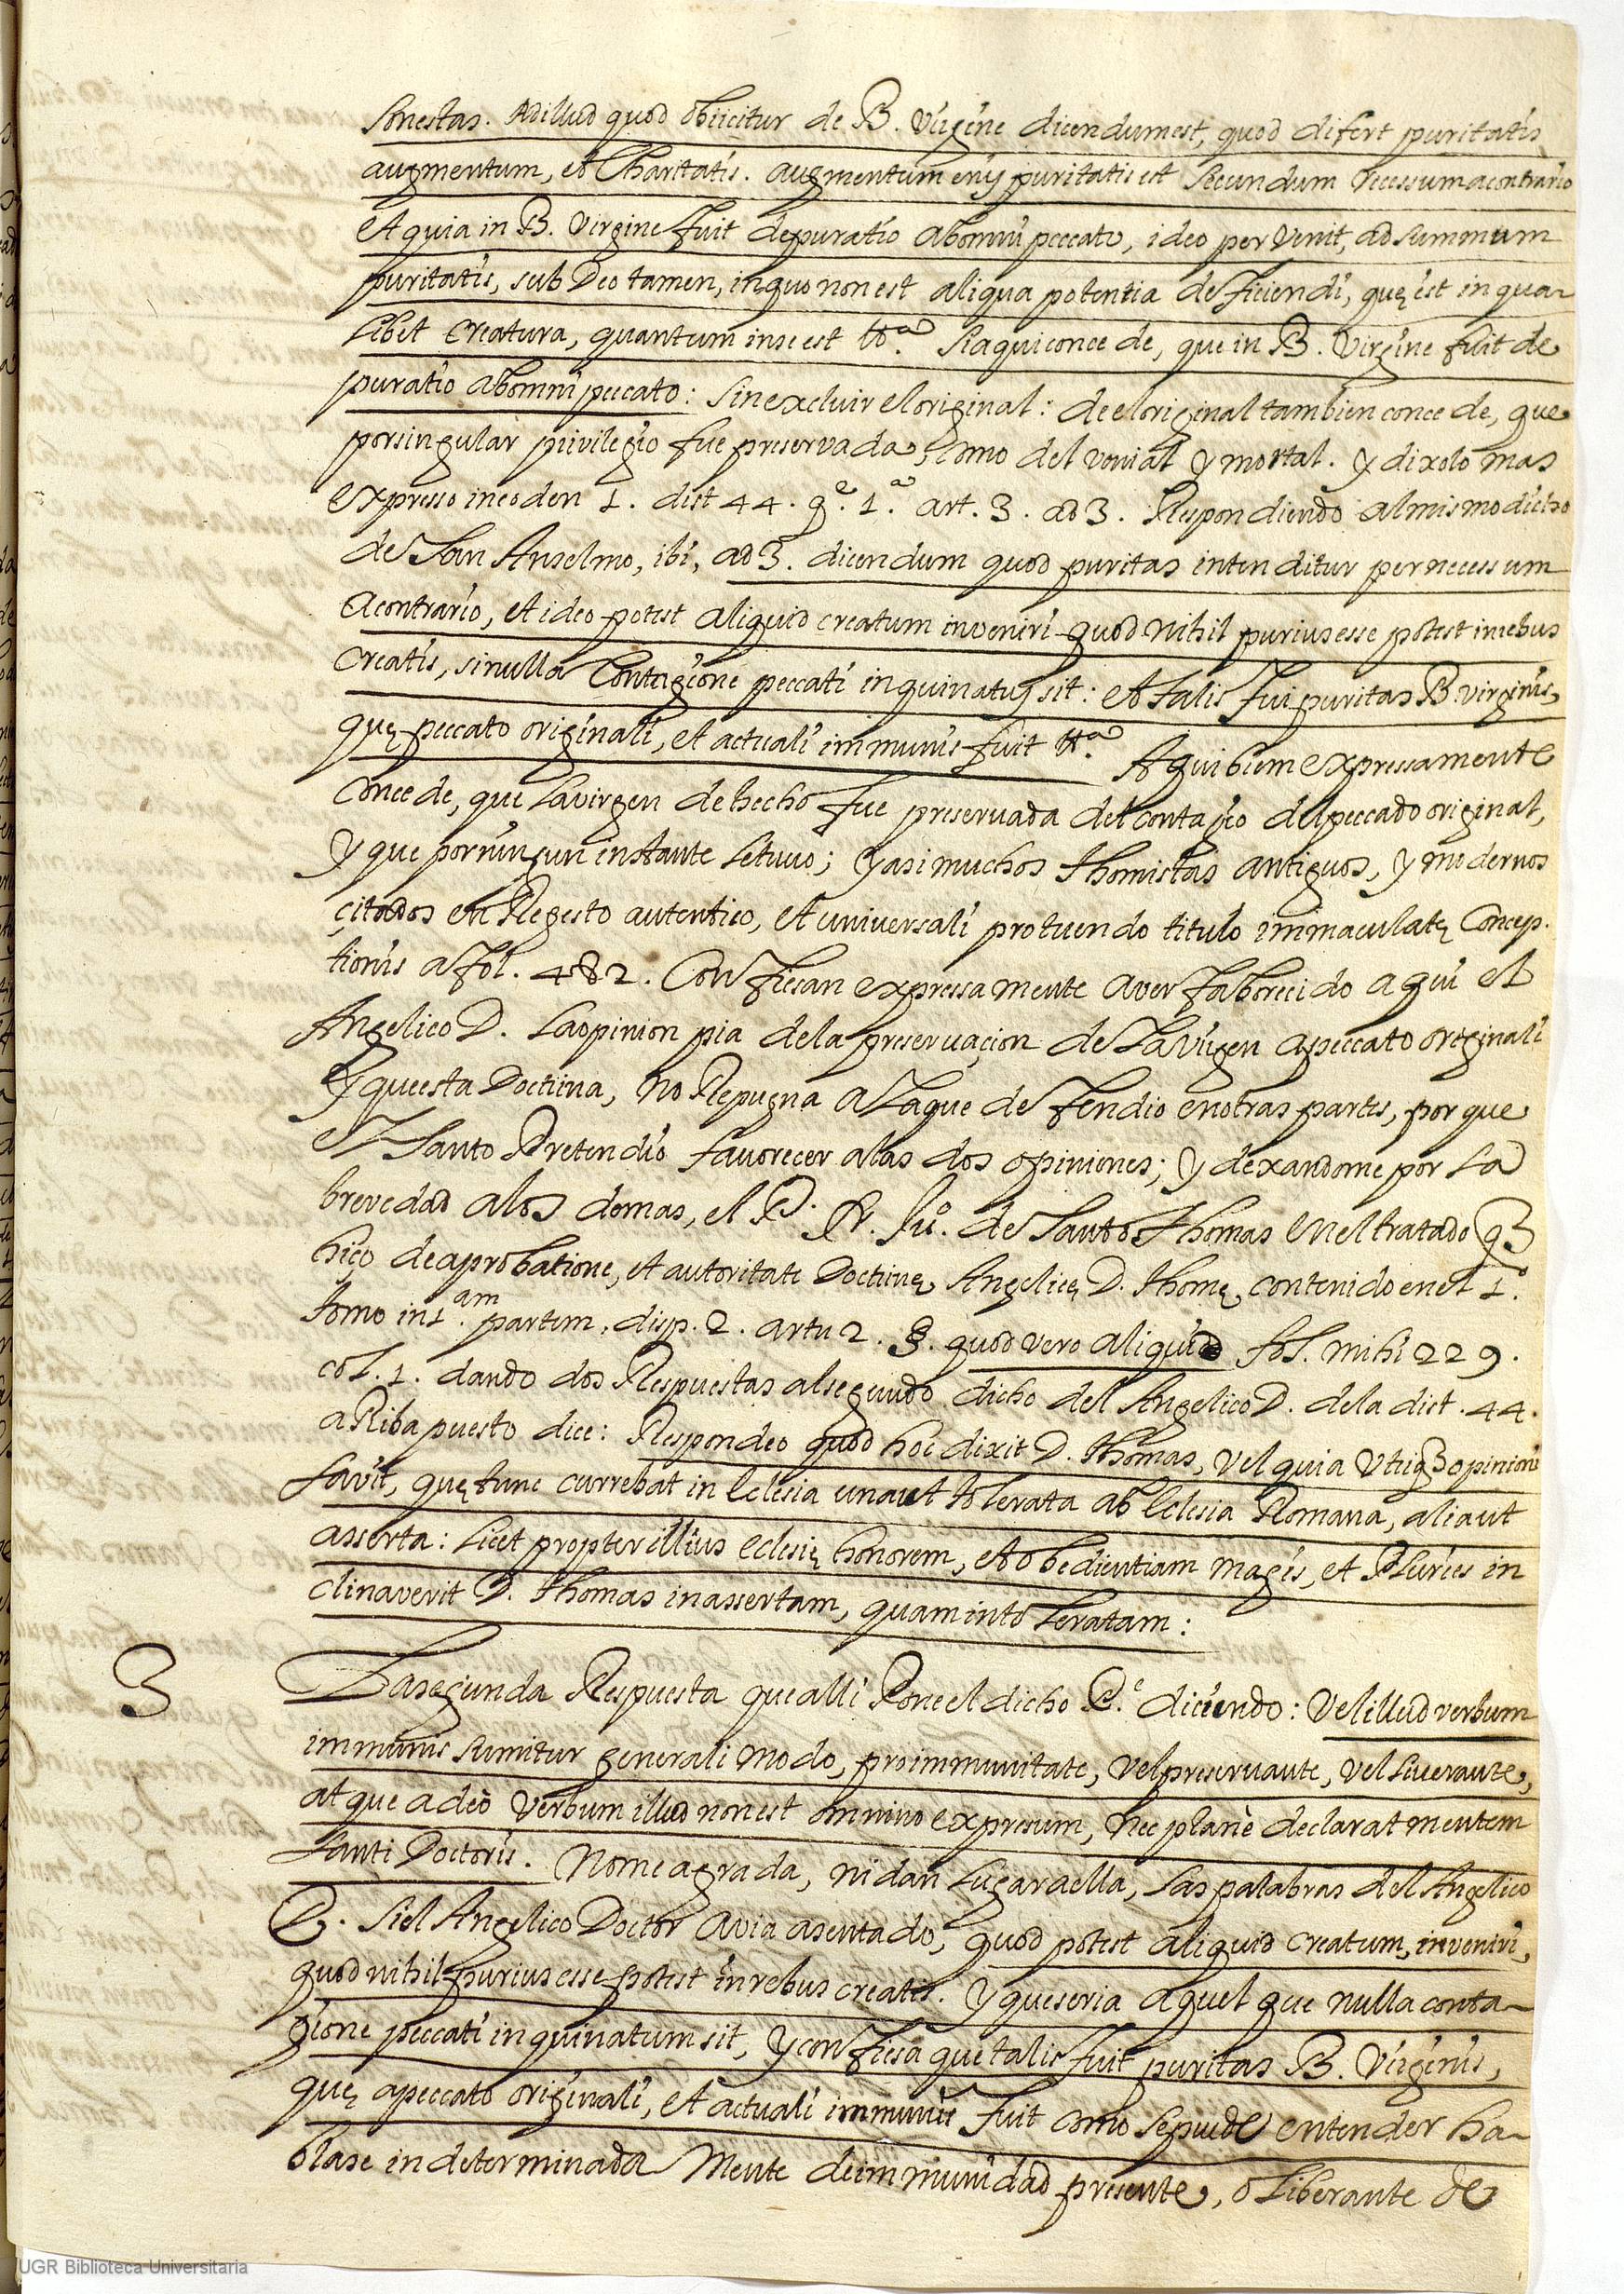 honestas. Ad illud quod obiicitur de B. Virgine dicendum est, quod difert puritatis
augmentum, et Charitatis. augmentum enij puritatis est secundum recessum a contrario
et quia in B. Virgine fuit depuratio ab omni peccato, ideo per venit, ad summum
puritatis, sub Deo tamen, in quo non est aliqua potentia deficiendi, quę est in qua-
libet creatura, quantum in se est ttª. Ia qui concede, que in B. Virgine fuit de
puratio ab omni peccato: sin excluir el original: de el original tambien concede, que
por singular privilegio fue preservada, como del venial y mortal. y dixolo mas
expresso in eoden 1. dist 44. qᵉ. 1ª. art. 3. ad 3. Respondiendo al mismo dicho
de San Anselmo, ibi, ad 3. dicendum quod puritas intenditur per necessum
a contrario, et ideo potest aliquid creatum inveniri quod nihil purius esse potest in rebus
creatis, si nulla Contagione peccati inquinatuj sit: et talis fui puritas B. virginis,
quę peccato originali, et actuali immunis fuit ttª. Aqui bien expressamente
Concede, que la virgen de hecho fue preservada del contagio del peccado original,
y que por ningun instante le tuvo; y asi muchos thomistas antiguos, y modernos
çitados en Regesto autentico, et universali pro tuendo titulo immaculatę Concep.
tionis a fol. 482. Confiesan expressamente aver faborecido aqui el
Angelico D. la opinion pia de la preservaçion de la Virgen a peccato originali
y que esta Doctrina, no Repugna a la que defendio en otras partes, por que
el Santo Pretendio favorecer a las dos opiniones; y dexandome por la
brevedad a los demas, el P. Fr. Juº. de Santo Thomas en el tratado q3
hiço de aprobatione, et autoritate Doctrinę Angelicę D. thomę, contenido en el 1º.
tomo in 1.ᵃᵐ partem, disp. 2. artu 2. §. quod vero aliquid fol. mihi 229.
col. 1. dando dos Respuestas al segundo dicho del Angelico D. de la dist. 44.
a Riba puesto dice: Respondeo quod hoc dixit D. thomas, vel quia utriq3 opinioni
favit, quę tunc currebat in Eclesia una ut tolerata ab Eclesia Romana, alia ut
asserta: licet propter illius eclesię honorem, et obedientiam magis, et Pluries in
clinaverit D. thomas in assertam, quam in toleratam:
3 La segunda Respuesta que alli Pone el dicho P.ᵉ diciendo: Vel illud verbum
immunis sumitur generali modo, pro immunitate, vel preservante, vel liverante,
atque adeò verbum illud non est omnino expresum, nec planè declarat mentem
Santi Doctoris. No me agrada, ni dan lugar a ella, las palabras del Angelico
D. si el Angelico Doctor avia asentado, quod potest aliquid creatum, inveniri,
quod nihil purius esse potest in rebus creatis. y que seria aquel que nulla conta-
gione peccati inquinatum sit, y confiesa que talis fuit puritas B. Virginis,
quę a peccato originali, et actuali immunis fuit como se puede entender ha-
blase indeterminada mente de immunidad presente, o liberante de
UGR Biblioteca Universitaria